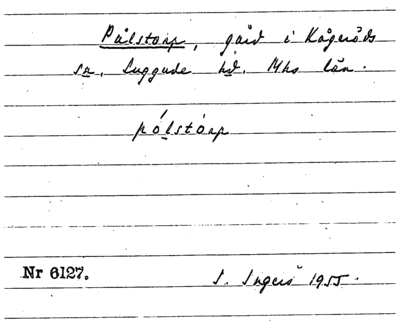 Pålstorp, gård i Kågeröds
sn, Luggude hd. Mhs län.
pólstórp
Nr 6127.
S. Ingers 1955.